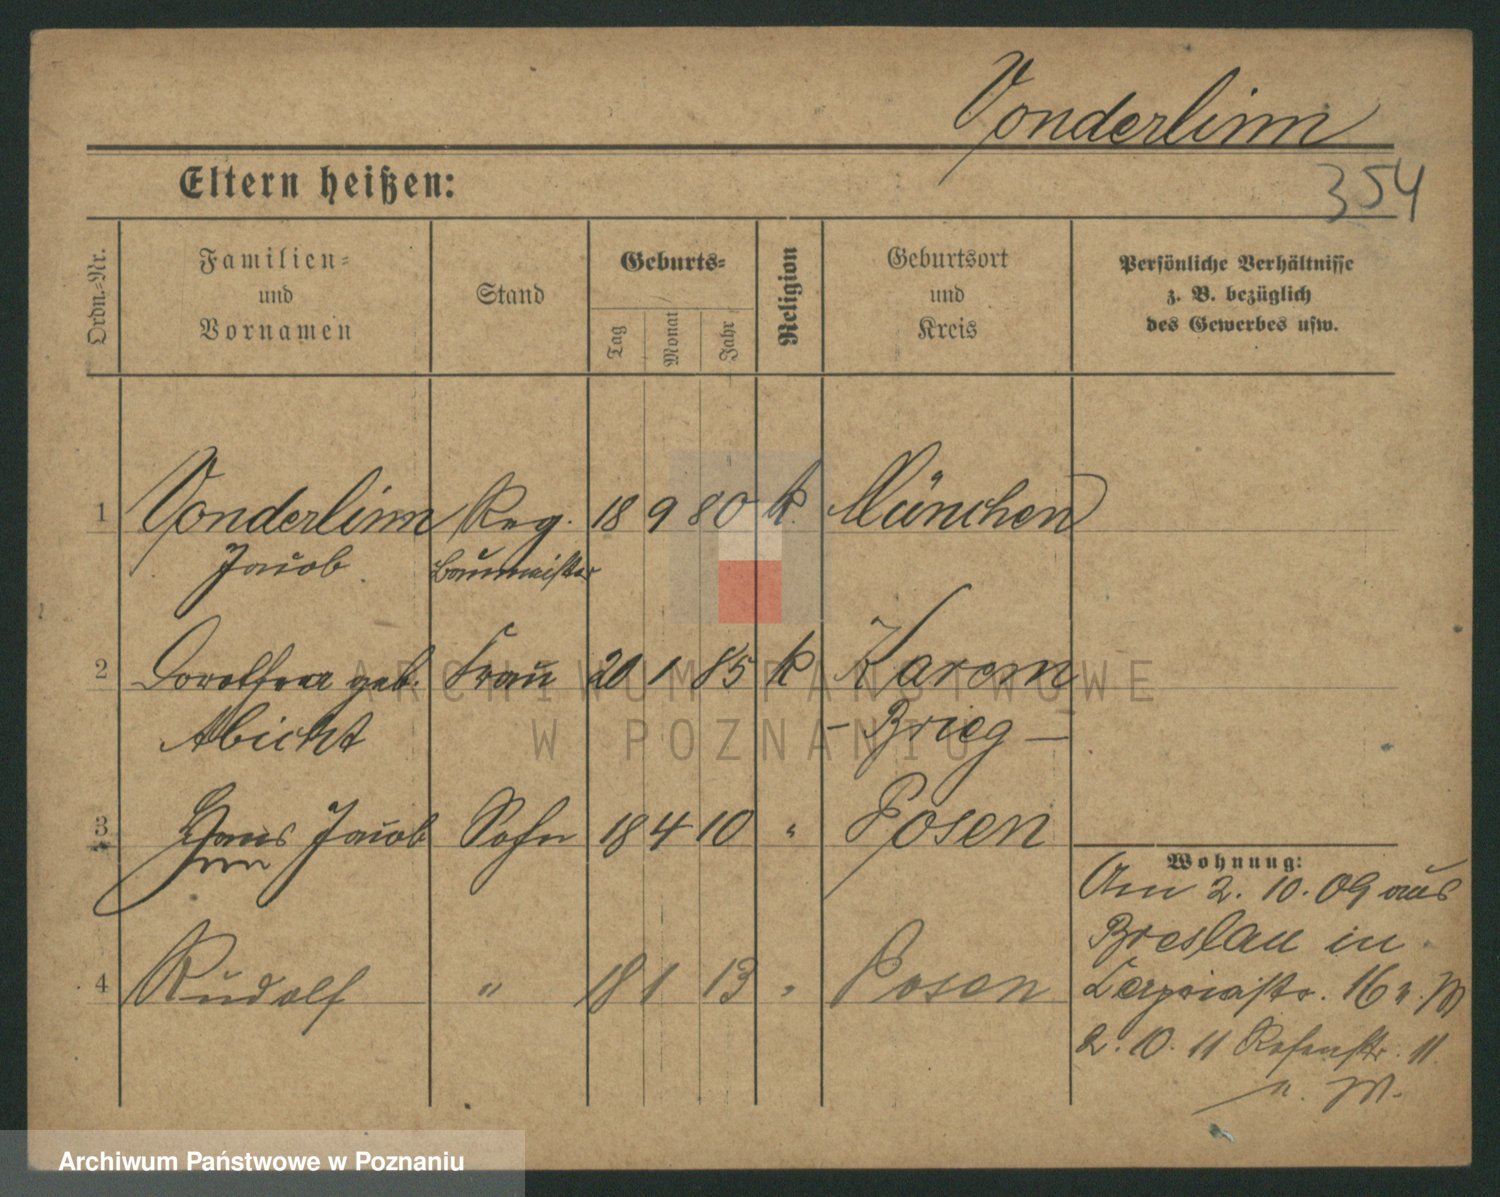 Vonderlinn
Eltern heißen:
354
Ordn.-Nr.
Familien-
und
Vornamen
Stand
Geburts-
Tag
Monat
Jahr
Religion
Geburtsort
und
Kreis
Persönliche Verhältnisse
z. B. bezüglich
des Gewerbes usw.
1 Vonderlinn Reg. 18 9 80 k. München
Jacob Baumeister
2 Dorothea geb. Frau 20 1 85 k Karem
Abicht - Brieg -
3 Hans Jacob Sohn 18 4 10 " Posen
Wohnung:
Am 2. 10. 09 aus
Breslau in
4 Rudolf " 18 1 13 " Posen
16 n. W
2. 10. 11 11
n. W.
ARCHIWUM PAŃSTWOWE
W POZNANIU
Archiwum Państwowe w Poznaniu